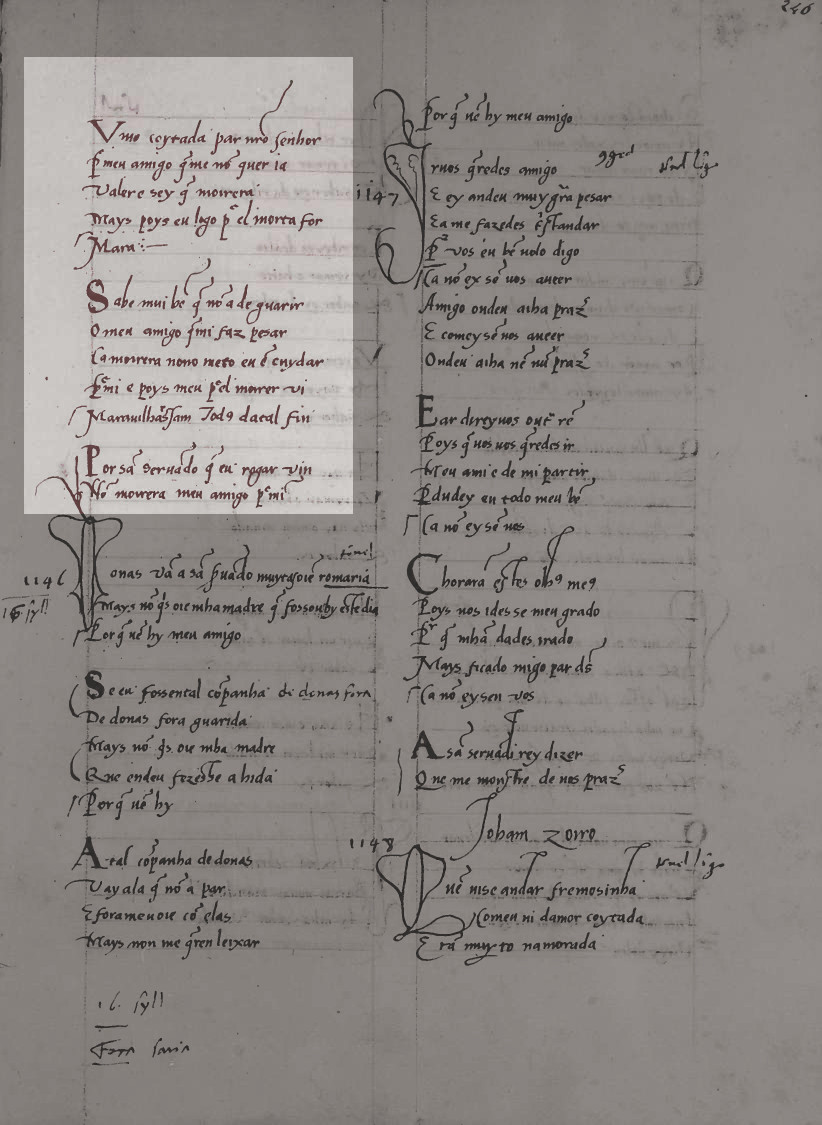 Vivo coytada par nro senhor
P̃ meu amigo q̃ me nõ quer ia
Valer e sey q̃ moirera
Mays poys eu logo pᵉl morta for
Mara :-
Sabe mui bẽ q̃ nõ a de guarir
O meu amigo q̃ mi faz pesar
Ca moirera nono meto eu ẽ cuydar
P̃ mi e poys meu pᵉl moirer vi
Marauilhars sam Tod9 da tal fin
Por sã seruado q̃ eu rogar vin
Nõ moirera meu amigo pᵉ mi
246
1146
16 syll
tornel
Donas Vã a sã seruado muytas oie romaria
Mays nõ q̃s oie mha madre q̃ fosse u hy este dia
Por q̃ uẽ hy meu amigo
Se eu fossen tal cõpanha de donas fora
De donas fora guarida
Mays nõ q̃s oie mha madre
Que endeu fezesse a hida
Por q̃ uẽ hy
A tal cõpanha de donas
Vay ala q̃ nõ a par
E fora meu oie cõ elas
Mays non me q̃ren leixar
16 syll
Por q̃ uẽ hy meu amigo
1147
Ir uos q̃redes amigo
E ey andeu muy grã pesar
Ca me fazedes trist andar
P̃ vos eu bẽ uolo digo
Ca nõ ey sẽ uos a ueer
Amigo ondeu aiha praz
E com ey sẽ uos a ueer
Ondeu aiha nẽ nũ praz
E ar direyuos out rẽ
Poys q̃ uos uos q̃redes ir
Meu ami e de mi partir
P̃dud ey eu todo meu bẽ
Ca nõ ey sẽ uos
Chorarã estes olh9 me9
Poys uos ides se meu grado
P̃r q̃ mhã dades irado
Mays ficado migo par ds
Ca nõ ey sen vos
A sã seruadi rey dizer
Que me monstre de uos praz
Joham zorro
1148
Quẽ uise andar fremosinha
Comeu ui damor coytada
E tã muyto namorada